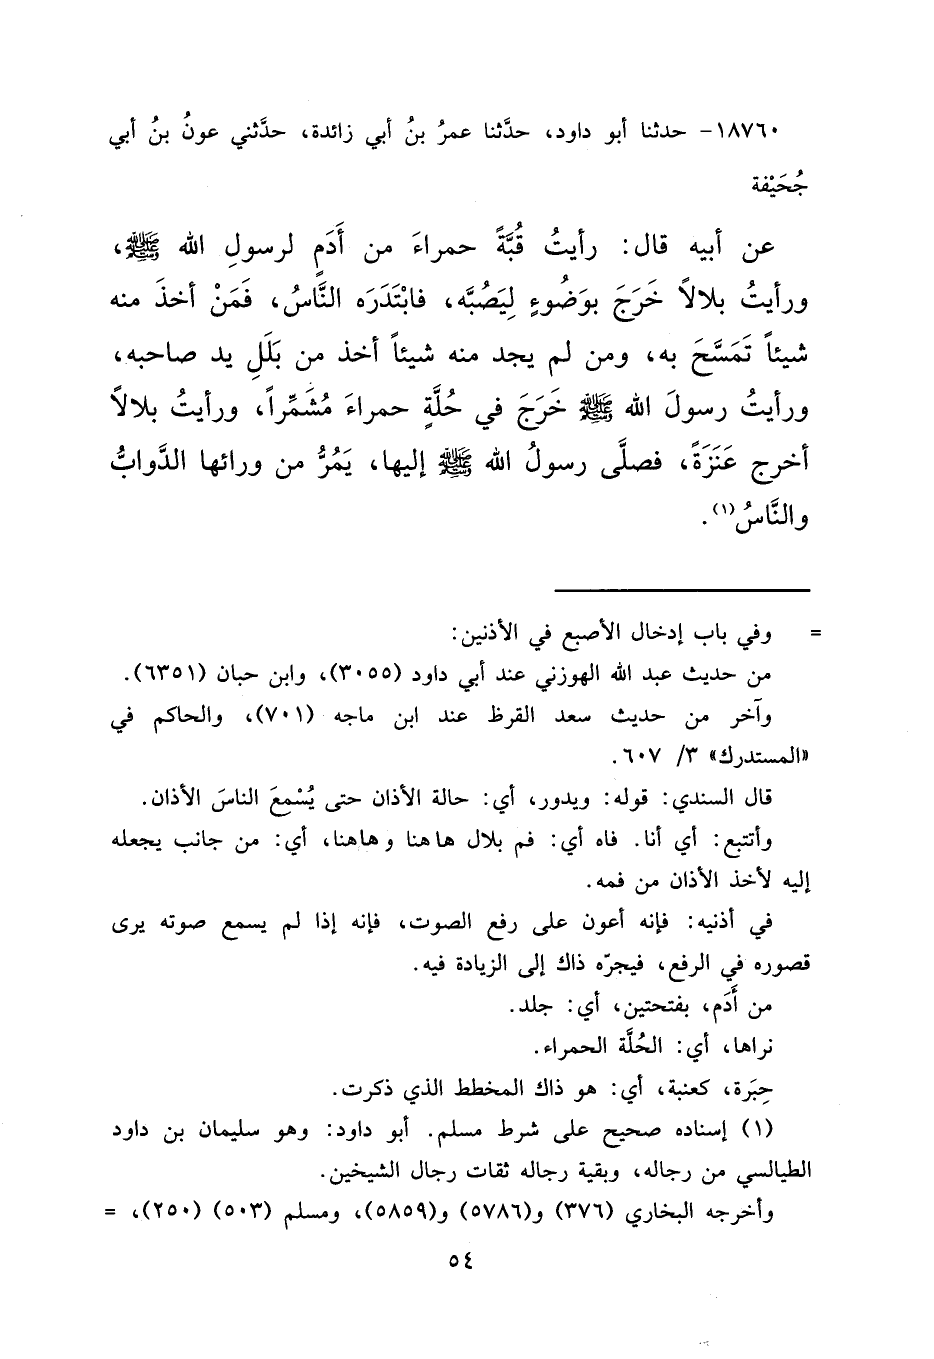 ١٨٧٦٠- حدثنا أبو داود، حدَّثنا عمرُ بنُ أبي زائدة، حدَّثني عونُ بنُ أبي
جُحَيْفة
عن أبيه قال: رأيتُ قُبَّةً حمراءَ من أَدَمٍ لرسولِ الله ﷺ،
ورأيتُ بلالاً خَرَجَ بوَضُوءٍ لِيَصُبَّه، فابْتَدَرَه النَّاسُ، فَمَنْ أخذَ منه
شيئاً تَمَسَّحَ به، ومن لم يجد منه شيئاً أخذ من بَلَلِ يد صاحبه،
ورأيتُ رسولَ الله ﷺ خَرَجَ في حُلَّةٍ حمراءَ مُشَمِّراً، ورأيتُ بلالاً
أخرج عَنَزَةً، فصلَّى رسولُ الله ﷺ إليها، يَمُرُّ من ورائها الدَّوابُّ
والنَّاسُ(١).
= وفي باب إدخال الأصبع في الأذنين:
من حديث عبد الله الهوزني عند أبي داود (٣٠٥٥)، وابن حبان (٦٣٥١).
وآخر من حديث سعد القرظ عند ابن ماجه (٧٠١)، والحاكم في
«المستدرك» ٣/ ٦٠٧.
قال السندي: قوله: ويدور، أي: حالة الأذان حتى يُسْمِعَ الناسَ الأذان.
وأتتبع: أي أنا. فاه أي: فم بلال هاهنا وهاهنا، أي: من جانب يجعله
إليه لأخذ الأذان من فمه.
في أذنيه: فإنه أعون على رفع الصوت، فإنه إذا لم يسمع صوته يرى
قصوره في الرفع، فيجرّه ذاك إلى الزيادة فيه.
من أَدَم، بفتحتين، أي: جلد.
نراها، أي: الحُلَّة الحمراء.
حِبَرة، كعنبة، أي: هو ذاك المخطط الذي ذكرت.
(١) إسناده صحيح على شرط مسلم. أبو داود: وهو سليمان بن داود
الطيالسي من رجاله، وبقية رجاله ثقات رجال الشيخين.
وأخرجه البخاري (٣٧٦) و(٥٧٨٦) و(٥٨٥٩)، ومسلم (٥٠٣) (٢٥٠)، =
٥٤